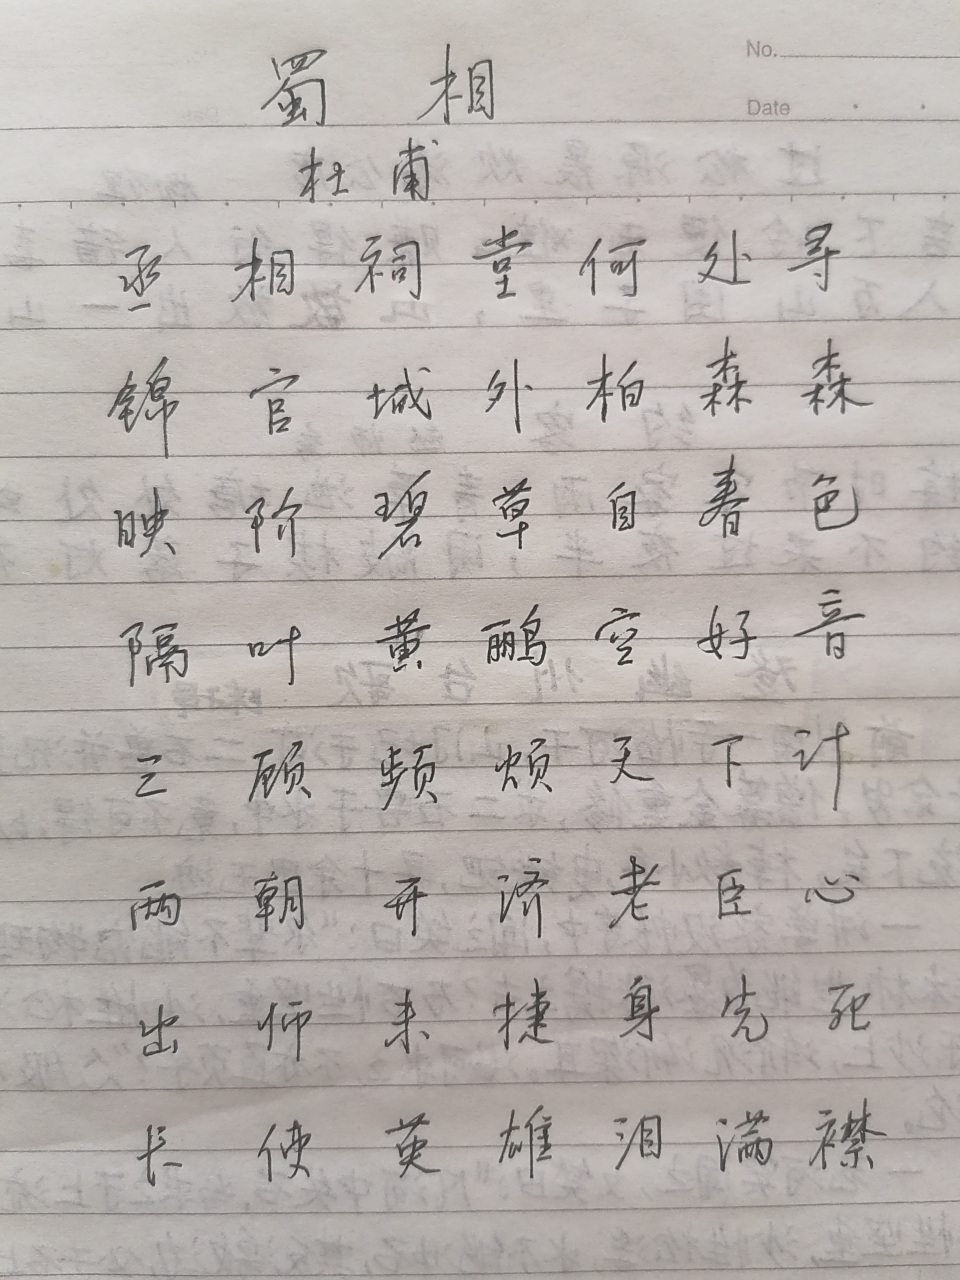 No.
Date
蜀相
杜甫
丞相祠堂何处寻
锦官城外柏森森
映阶碧草自春色
隔叶黄鹂空好音
三顾频烦天下计
两朝开济老臣心
出师未捷身先死
长使英雄泪满襟